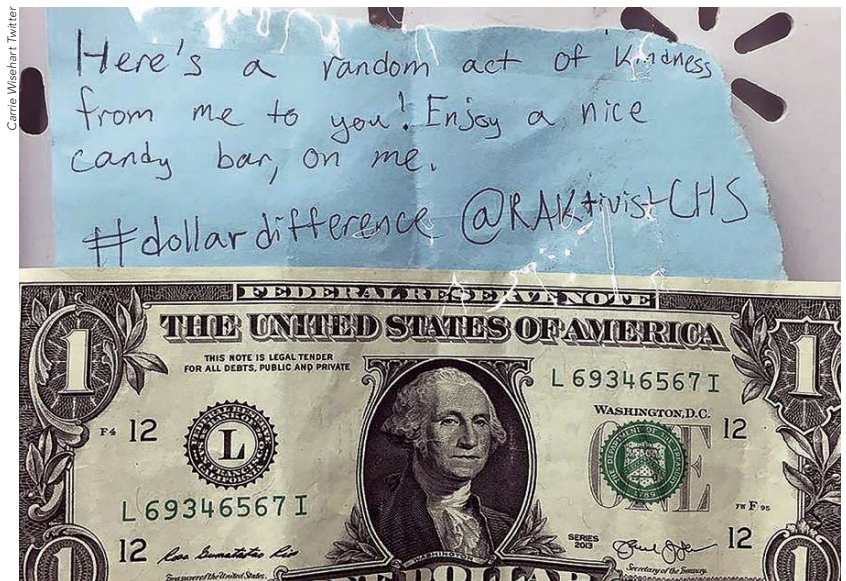 Carrie Wisehart Twitter
Here's a random act of kindness
from me to you! Enjoy a nice
candy bar, on me.
#dollardifference @RAKtivistCHS
FEDERAL RESERVE NOTE
THE UNITED STATES OF AMERICA
1 1
THIS NOTE IS LEGAL TENDER
FOR ALL DEBTS, PUBLIC AND PRIVATE
L 69346567 I
WASHINGTON, D.C.
F4 12 12
L
ONE
1789
L 69346567 I
FW F 95
12 SERIES 12
2013
Treasurer of the United States.
WASHINGTON
Secretary of the Treasury.
1 ONE DOLLAR 1